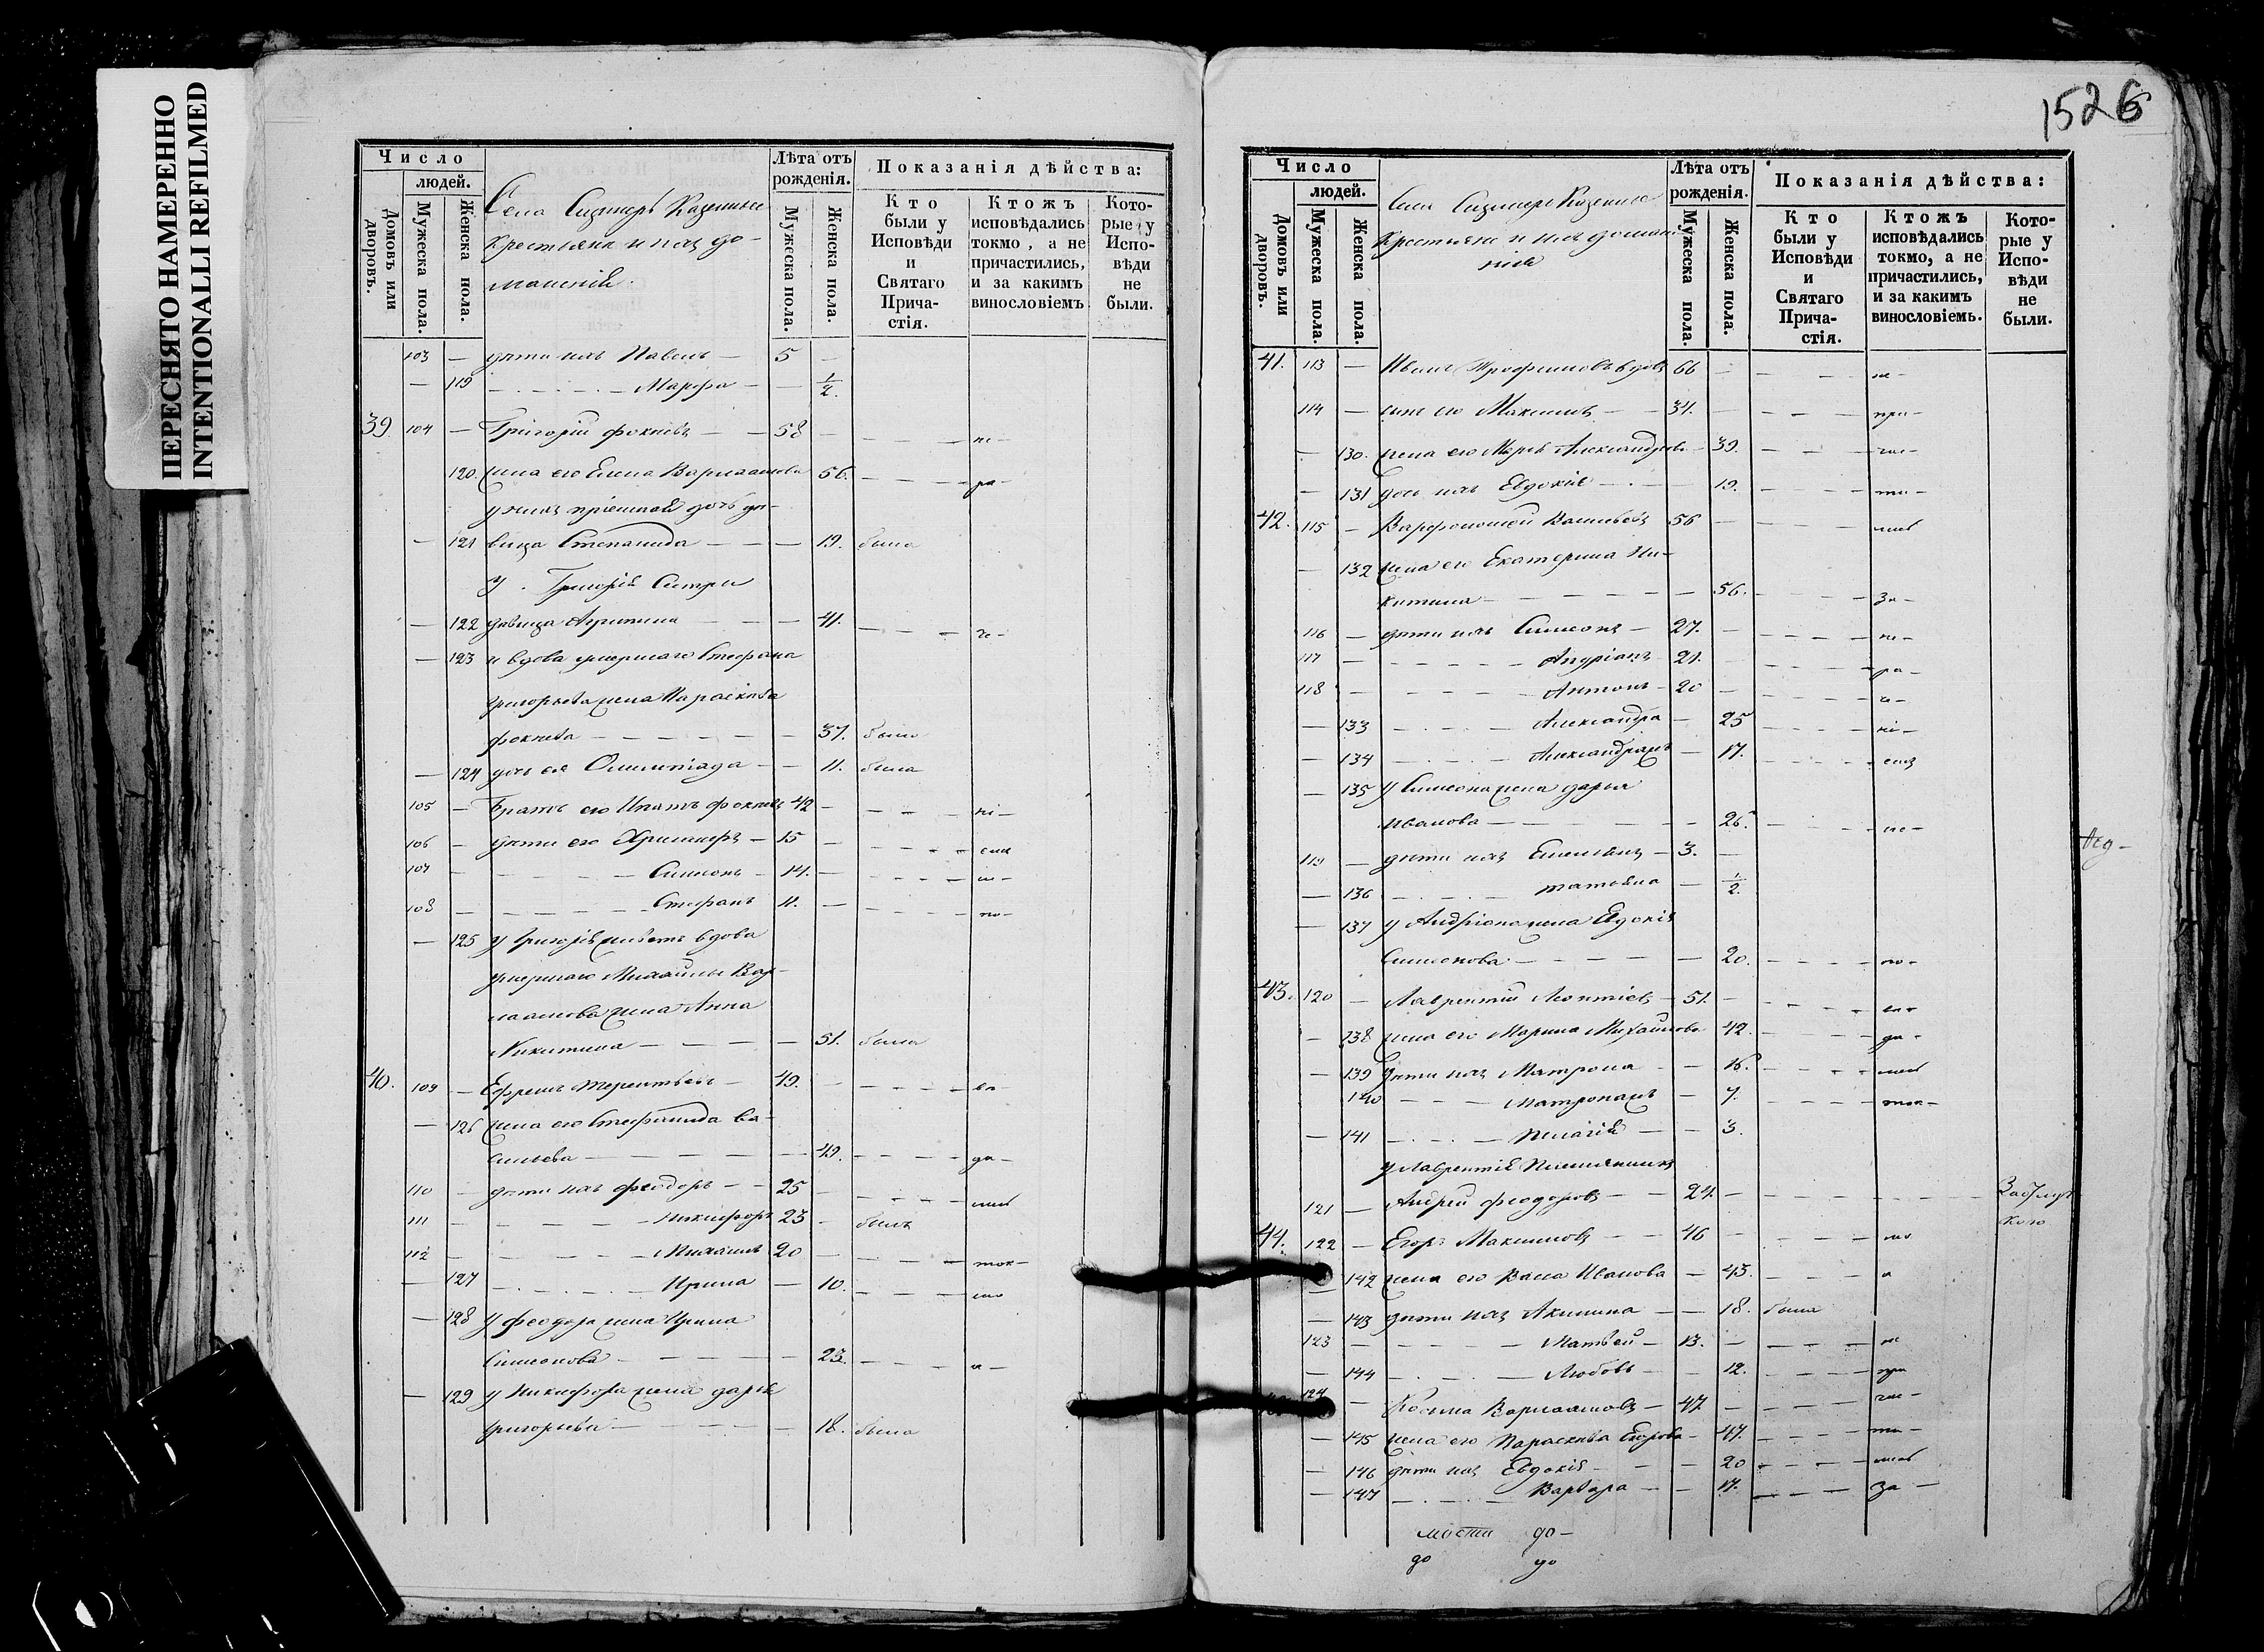 ПЕРЕСНЯТО НАМЕРЕННО
INTENTIONALLI REFILMED
Число
людей.
Домовъ или дворовъ.
Мужеска пола.
Женска пола.
Села Сизнеръ Казенные
крестьяне и ихъ до-
машнія.
Лѣта отъ рожденія.
Мужеска пола.
Женска пола.
Показанія дѣйства:
Кто были у Исповѣди и Святаго Прича-стія.
Ктожъ исповѣдались токмо, а не причастились, и за какимъ винословіемъ.
Кото-рые у Испо-вѣди не были.
103 — дѣти ихъ Павелъ — 5 —
— 119 Марѳа — — 1/2.
39. 104 — Григорій Фокѣевъ — — 58 — не —
120. жена его Елена Варлаамова 56. — ра —
у нихъ пріемная дочь дѣ-
— 121 вица Степанида — — — 19. была
У Григорія сестры
— 122 дѣвица Агрипина — — — 41. — че —
— 123 и вдова умершаго Стефана
Григорьева жена Параскева
Фокѣева — 37. была
— 124 дочь ея Олимпіада — — 11. была
105 — Братъ его Игнатъ Фокѣевъ 42 — ні —
106 — дѣти его Христофоръ — 15 — емъ
107 — Симеонъ — 14. —
108 — Стефанъ 11. — по —
— 125 у Григорія живетъ вдова
умершаго Михайлы Вар-
лаамова жена Анна
Никитина — 51. была
40. 109 — Ефремъ Терентьевъ — 49. — во —
— 126 жена его Стефанида Ва-
сильева — 49. — ди —
110 — дѣти ихъ Феодоръ — — 25 —
111 — Никифоръ 23 — былъ
112 — Михаилъ 20 — ток —
— 127 Ирина — 10. — мо
— 128 у Феодора жена Ирина
Симеонова — 23. — и —
— 129 у Никифора жена Дарья
Григорьева — 18. была
1526
Число
людей.
Домовъ или дворовъ.
Мужеска пола.
Женска пола.
Села Сизнеръ Казенные
Крестьяне и ихъ домаш-
нія
Лѣта отъ рожденія.
Мужеска пола.
Женска пола.
Показанія дѣйства:
Кто были у Исповѣди и Святаго Прича-стія.
Ктожъ исповѣдались токмо, а не причастились, и за какимъ винословіемъ.
Кото-рые у Испо-вѣди не были.
41. 113 — Иванъ Трофимовъ вдовъ 66 — не —
114 — сынъ его Максимъ — — 34. — при —
— 130. жена его Марья Александрова — 39. — час —
— 131 дочь ихъ Евдокія — 19. — ти —
42. 115 — Варфоломей Васильевъ 56 —
— 132 жена его Екатерина Ни-
китина — 56. — за —
116 — дѣти ихъ Симеонъ — 27. — не —
117 — Андріанъ 21. — ра —
118 — Антонъ — 20 — че —
— 133 Александра — 25 — ні —
— 134 Александра — 17. — емъ
— 135 У Симеона жена Дарья
Иванова — 26. —
119 — дѣти ихъ Емельянъ — 3. —
— 136 Татьяна — 1/2.
— 137 у Андріана жена Евдокія
Симеонова — 20. — по —
43. 120 — Лаврентій Леонтіевъ — 51. — во —
— 138 жена его Марина Михайлова 42. — ди —
— 139 дѣти ихъ Матрона — 16.
140 Матрона — 7. — ток —
— 141 Пелагія — — 3.
у Лаврентія племянникъ
121 — Андрей Феодоровъ — — 24. —
44. 122 — Егоръ Максимовъ — — 46 — мо
— 142 жена его Васса Иванова — 43. — и
— 143 дѣти ихъ Акилина — — 18. была
123 — Матвей — 13. — не
— 144 Любовь — — 12. — при
124 — Косьма Варлаамовъ — 47 — час —
— 145 жена его Параскева Егорова — 47. — ти —
— 146 дѣти ихъ Евдокія — 20
— 147 Варвара — — 17. — за —